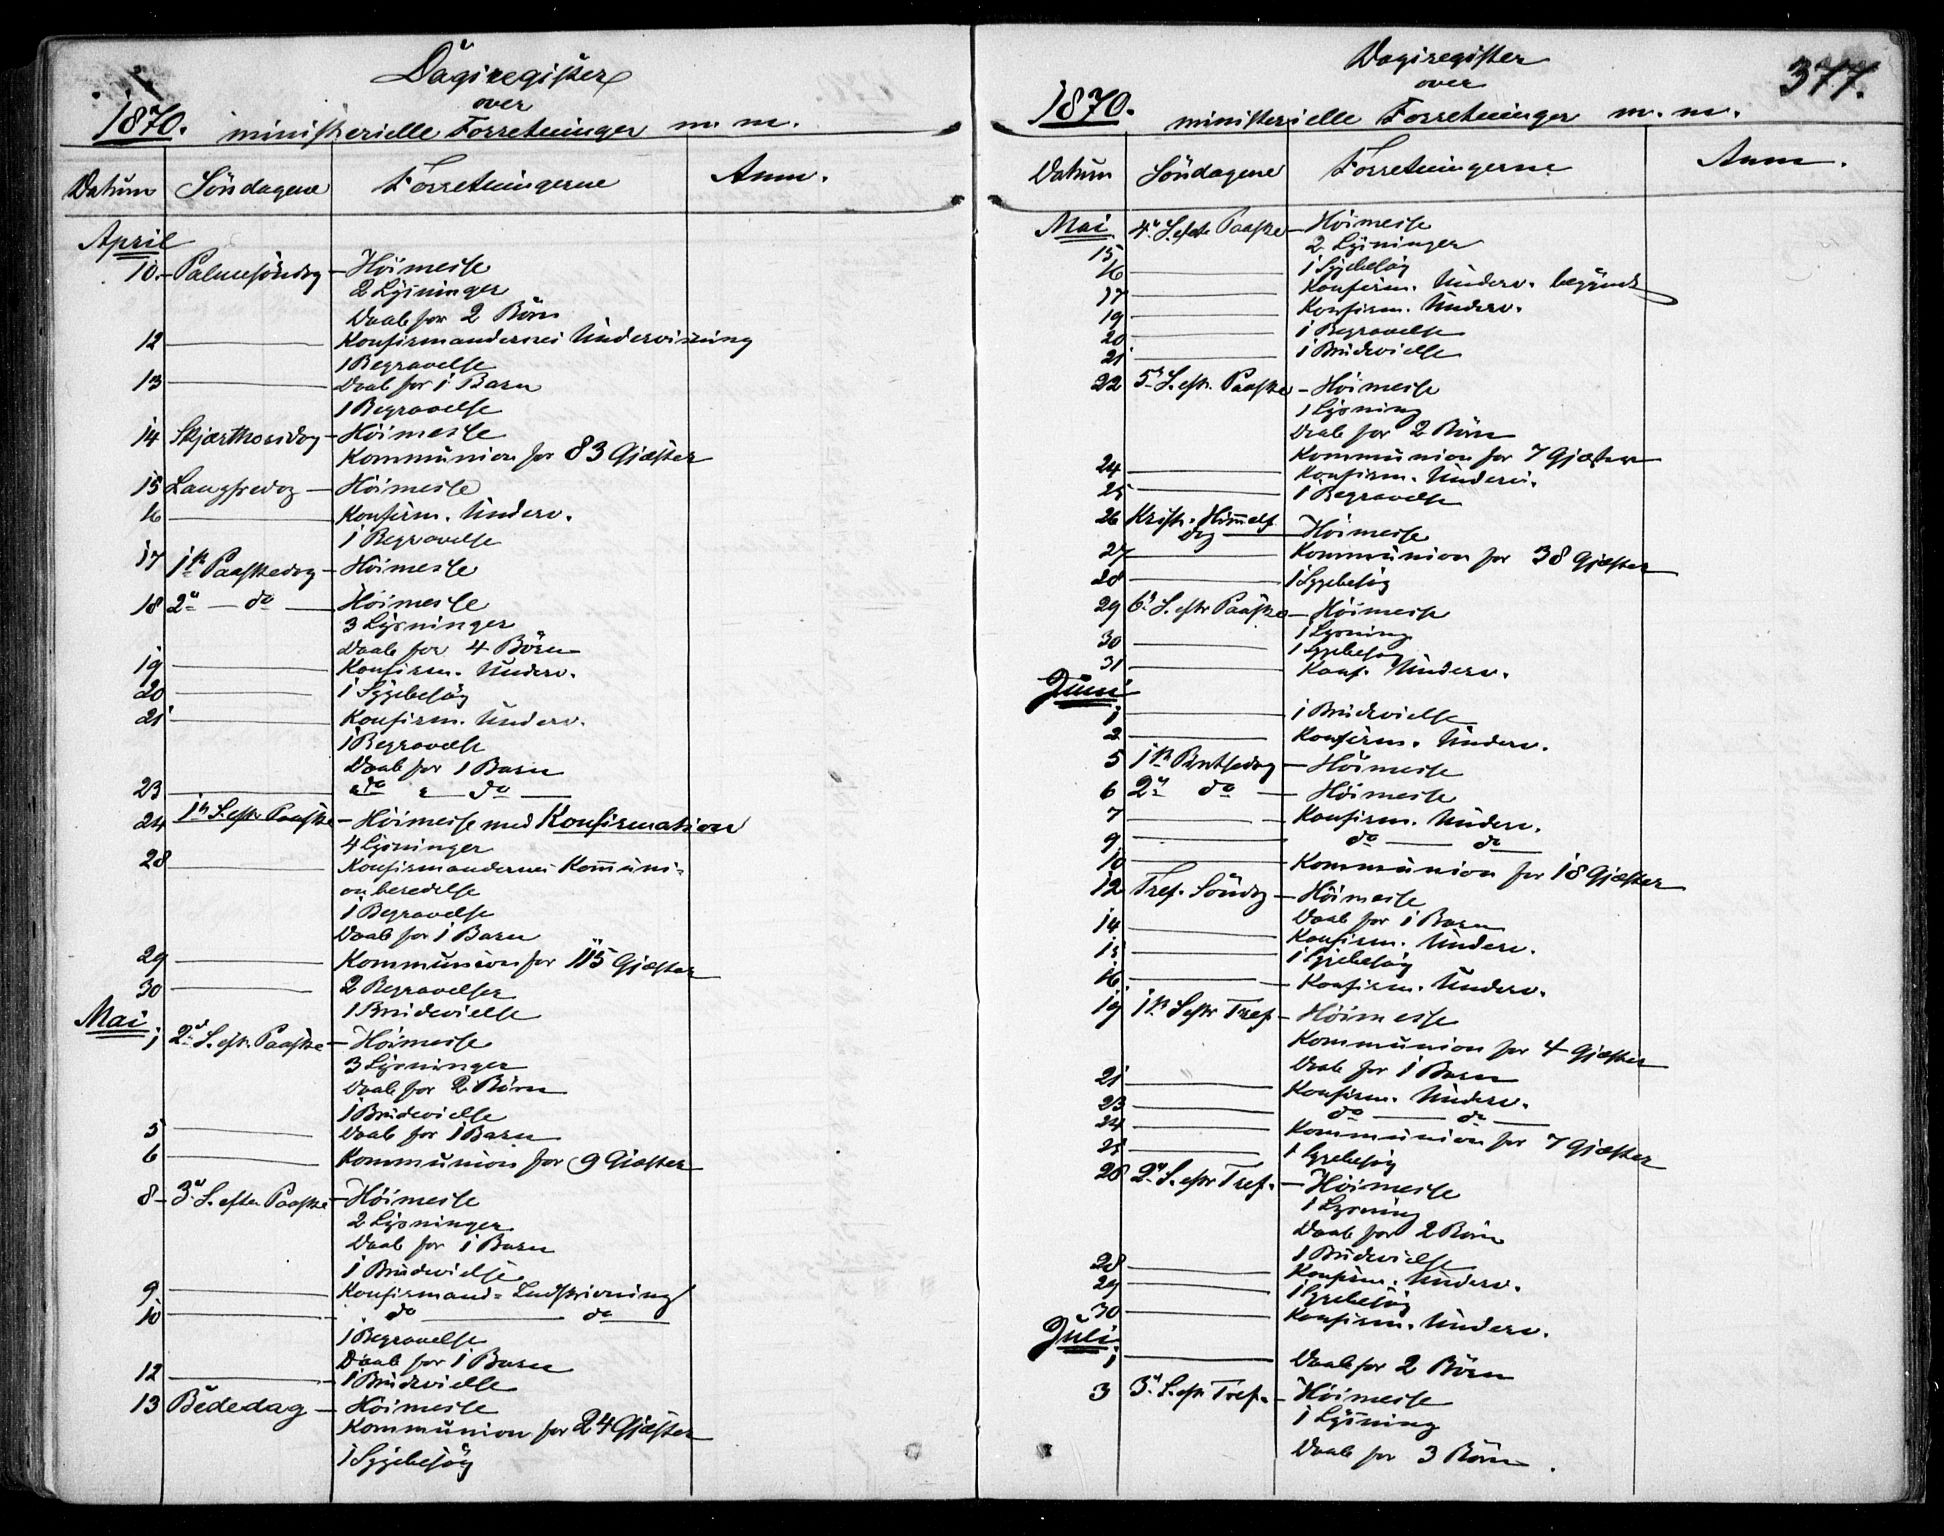 Dagsregister
over
1870. ministerielle Forretninger m. m.
Datum Söndagene Forretningerne Anm.
April
10. Palmesöndag Höimesse
2 Lysninger
Daab for 2 Börn
12 Konfirmandernes Undervisning
1 Begravelse
13 Daab for 1 Barn
1 Begravelse
14 Skjærthorsdag Höimesse
Kommunion for 83 Gjæster
15 Langfredag Höimesse
16 Konfirm. Underv.
1 Begravelse
17 1ste Paaskedag Höimesse
18 2n do Höimesse
3 Lysninger
Daab for 4 Börn
19 Konfirm. Underv.
20 1 Sygebesög
21 Konfirm. Underv.
1 Begravelse
Daab for 1 Barn
23 do do
24 1n S. eftr Paaske Höimesse med Konfirmation
4 Lysninger
28 Konfirmandernes Kommuni=
onberedelse
1 Begravelse
Daab for 1 Barn
29 Kommunion for 115 Gjæster
30 2 Begravelser
1 Brudevielse
Mai
1 2n S. eftr. Paaske Höimesse
3 Lysninger
Daab for 2 Börn
1 Brudevielse
5 Daab for 1 Barn
6 Kommunion for 9 Gjæster
8 3n S. efter Paaske Höimesse
2 Lysninger
Daab for 1 Barn
1 Brudevielse
9 Konfirmand=Indskrivning
10 do do
1 Begravelse
Daab for 1 Barn
12 1 Brudevielse
13 Bededag Höimesse
Kommunion for 24 Gjæster
1 Sygebesög
Dagsregister 377.
over
1870. ministerielle Forretninger m. m.
Datum Söndagene Forretningerne Anm.
Mai 4n S. eftr Paaske Höimesse
15 2 Lysninger
16 1 Sygebesög
17 Konfirm. Underv. begyndt
19 Konfirm. Underv.
20 1 Begravelse
21 1 Brudevielse
22 5n S. eftr. Paaske Höimesse
1 Lysning
Daab for 2 Börn
Kommunion for 7 Gjæster
24 Konfirm. Underv.
25 1 Begravelse
26 Krist. Himmelf
dag Höimesse
27 Kommunion for 38 Gjæster
28 1 Sygebesög
29 6n S. eftr Paaske Höimesse
1 Lysning
30 1 Sygebesög
31 Konf. Underv.
Juni
1 1 Brudevielse
2 Konfirm. Underv.
5 1ste Pintsedag Höimesse
6 2n do Höimesse
7 Konfirm. Underv.
9 do do
10 Kommunion for 18 Gjæster
12 Tref. Söndag Höimesse
Daab for 1 Barn
14 Konfirm. Underv.
15 1 Sygebesög
16 Konfirm. Underv.
19 1ste S. eftr Tref. Höimesse
Kommunion for 4 Gjæster
Daab for 1 Barn
21 Konfirm. Underv.
23 do do
24 Kommunion for 7 Gjæster
25 1 Sygebesög
26 2n S. eftr Tref. Höimesse
1 Lysning
Daab for 2 Börn
1 Brudevielse
28 Konfirm. Underv.
29 1 Sygebesög
30 Konfirm. Underv.
Juli
1 Daab for 2 Börn
3 3n S. eftr Tref. Höimesse
1 Lysning
Daab for 3 Börn.